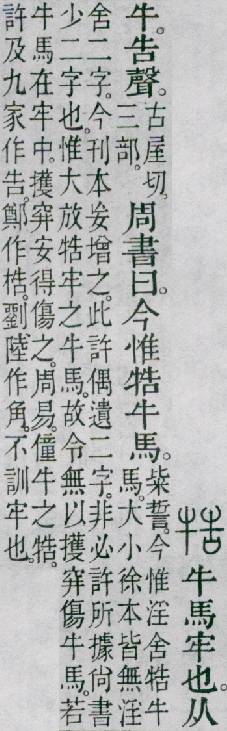 牿 牛馬牢也。从
牛。告聲。古屋切。三部。周書曰。今惟牿牛馬。粊誓。今惟淫舍牿牛馬。大小徐本皆無淫
舍二字。今刊本妄增之。此許偶遺二字。非必許所據尙書
少二字也。惟大放牿牢之牛馬。故令無以擭穽傷牛馬。若
牛馬在牢中。擭穽安得傷之。周易。僮牛之牿。
許及九家作告。鄭作梏。劉陸作角。不訓牢也。